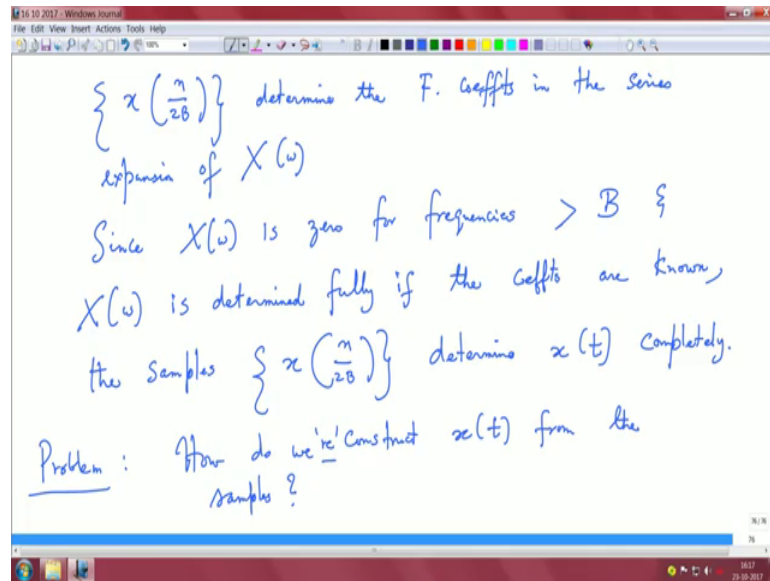 16 10 2017 - Windows Journal
File Edit View Insert Actions Tools Help
{ x ( n/2B ) } determine the F. coeffts in the series
expansion of X(ω)
Since X(ω) is zero for frequencies > B &
X(ω) is determined fully if the coeffts are known,
the samples { x ( n/2B ) } determine x(t) completely.
Problem : How do we 're'construct x(t) from the
samples ?
76/76
76
16:17
23-10-2017